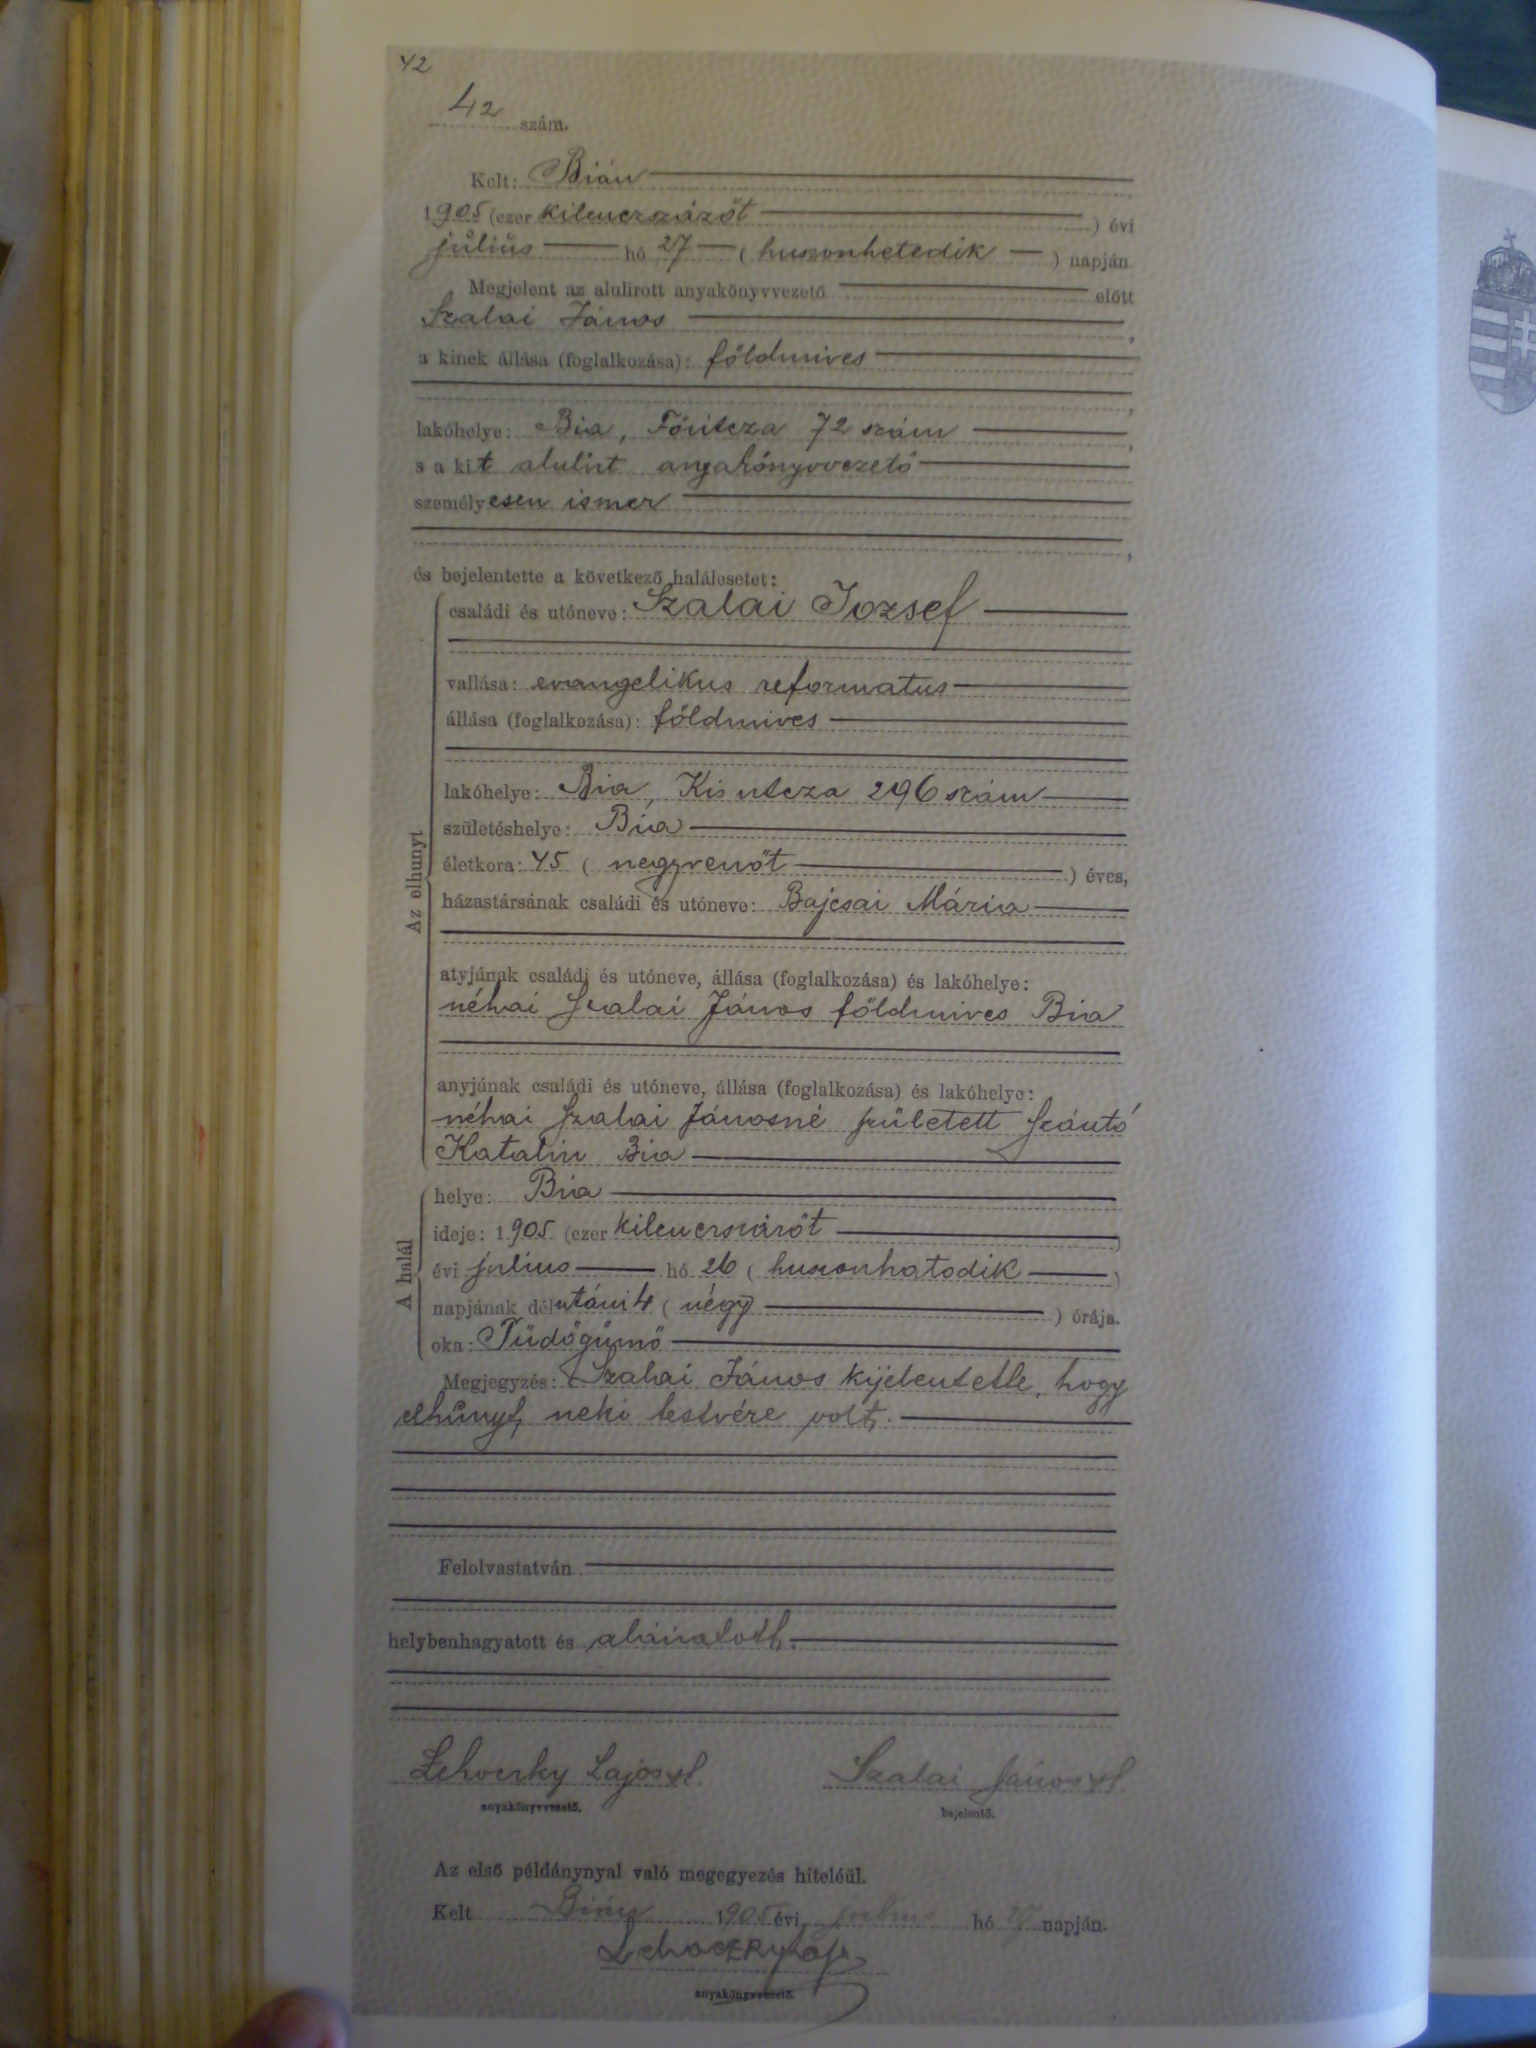 42
42 szám.
Kelt: Bián
1905 (ezer kilenczszázöt ) évi
július hó 27 ( huszonhetedik ) napján
Megjelent az alulirott anyakönyvvezető előtt
Szalai János ,
a kinek állása (foglalkozása): földmives
,
lakóhelye: Bia, Főutcza 72 szám ,
s a kit alulirt anyakönyvvezető
személyesen ismer
,
és bejelentette a következő halálesetet:
családi és utóneve: Szalai Jozsef
vallása: evangelikus reformatus
állása (foglalkozása): földmives
lakóhelye: Bia, Kis utcza 296 szám
születéshelye: Bia
Az elhunyt
életkora: 45 ( negyvenöt ) éves,
házastársának családi és utóneve: Bajcsai Mária
atyjának családi és utóneve, állása (foglalkozása) és lakóhelye:
néhai Szalai János földmives Bia
anyjának családi és utóneve, állása (foglalkozása) és lakóhelye:
néhai Szalai Jánosné született Szántó
Katalin Bia
A halál
helye: Bia
ideje: 1905 (ezer kilenczszázöt )
évi julius hó 26 ( huszonhatodik )
napjának délutáni 4 ( négy ) órája.
oka: Tüdőgümő
Megjegyzés: Szalai János kijelentette, hogy
elhúnyt, neki testvére volt.
Felolvastatván
helybenhagyatott és aláiratott.
Lehoczky Lajos sk. Szalai János sk.
anyakönyvvezető. bejelentő.
Az első példánynyal való megegyezés hiteléül.
Kelt Bián 1905 évi julius hó napján.
Lehoczky Lajos
anyakönyvvezető.